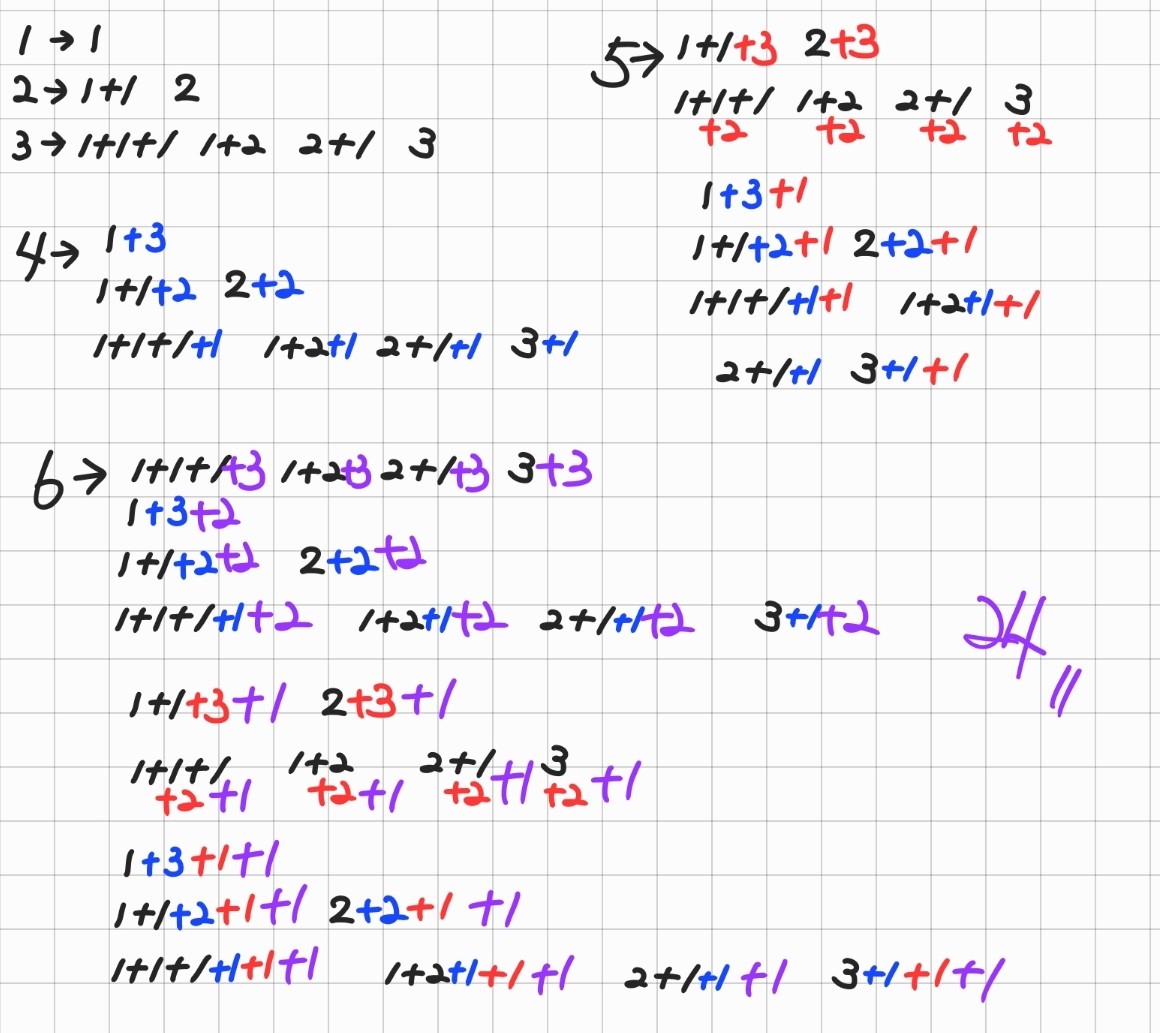 1 → 1
2 → 1+1 2
3 → 1+1+1 1+2 2+1 3
4 → 1+3
1+1+2 2+2
1+1+1+1 1+2+1 2+1+1 3+1
5 → 1+1+3 2+3
1+1+1 1+2 2+1 3
+2 +2 +2 +2
1+3+1
1+1+2+1 2+2+1
1+1+1+1+1 1+2+1+1
2+1+1 3+1+1
6 → 1+1+1+3 1+2+3 2+1+3 3+3
1+3+2
1+1+2+2 2+2+2
1+1+1+1+2 1+2+1+2 2+1+1+2 3+1+2
24
1+1+3+1 2+3+1
1+1+1 1+2 2+1 3
+2+1 +2+1 +2+1 +2+1
1+3+1+1
1+1+2+1+1 2+2+1+1
1+1+1+1+1+1 1+2+1+1+1 2+1+1+1 3+1+1+1